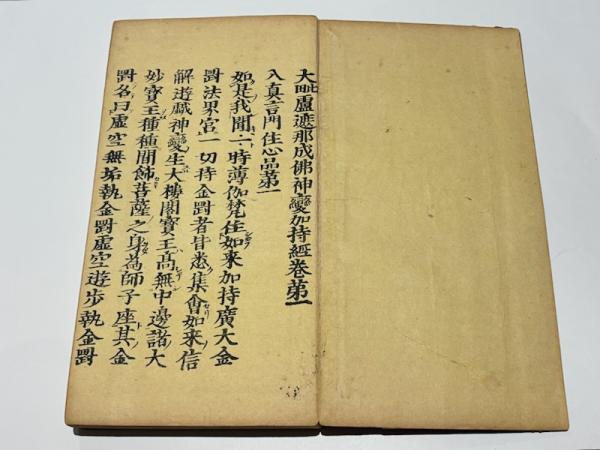 大毗盧遮那成佛神變加持經卷第一
入真言門住心品第一
如是我聞一時薄伽梵住如來加持廣大金
剛法界宮一切持金剛者皆悉集會如來信
解遊戲神變生大樓閣寶王高無中邊諸大
妙寶王種種間飾菩薩之身為師子座其金
剛名曰虛空無垢執金剛虛空遊步執金剛